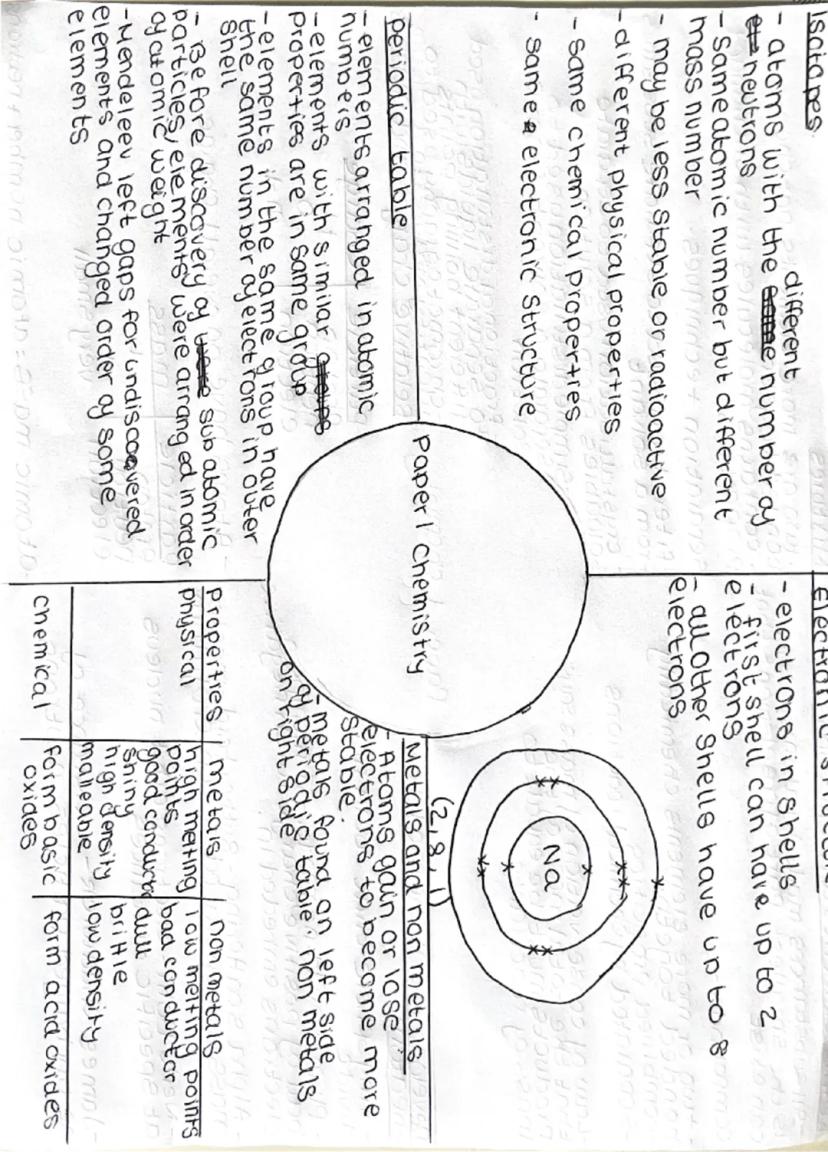 Isotopes
- atoms with the different number of
neutrons
- same atomic number but different
mass number
- may be less stable or radioactive
- different physical properties
- same chemical properties
- same electronic structure
Electronic structure
- electrons in shells
- first shell can have up to 2
electrons
- all other shells have up to 8
electrons
Na
(2,8,1)
Paper 1 Chemistry
periodic table
- elements arranged in atomic
numbers
- elements with similar
properties are in same group
- elements in the same group have
the same number of electrons in outer
shell
- Before discovery of sub atomic
particles, elements were arranged in order
of atomic weight
- Mendeleev left gaps for undiscovered
elements and changed order of some
elements
Metals and non metals
- Atoms gain or lose
electrons to become more
stable.
- metals found on left side
of periodic table, non metals
on right side
properties metals non metals
physical high melting points low melting points
good conductor bad conductor
shiny dull
high density brittle
malleable low density
chemical form basic oxides form acid oxides